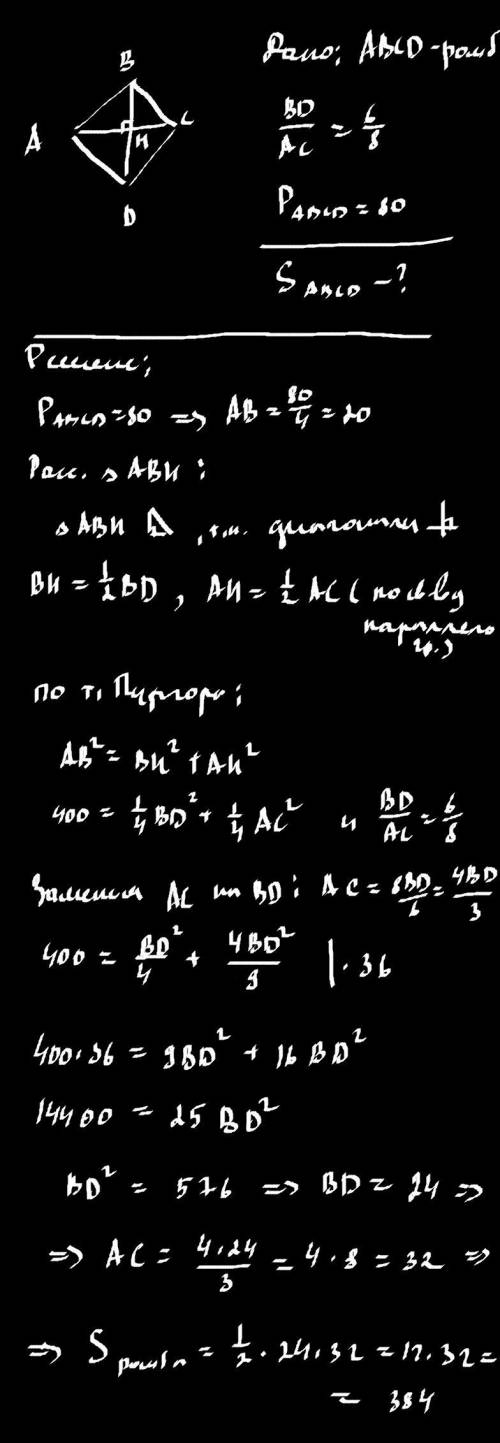 B
A
C
H
D
Дано: ABCD-ромб
BD/AC = 6/8
P ABCD = 80
S ABCD - ?
Решение:
P ABCD = 80 => AB = 80/4 = 20
Расс. △ABH:
△ABH ◺, т.к. диагонали ⊥
BH = 1/2 BD, AH = 1/2 AC (по св-ву
параллело
гр.)
по т. Пифагора:
AB² = BH² + AH²
400 = 1/4 BD² + 1/4 AC² и BD/AC = 6/8
Заменим AC на BD: AC = 8BD/6 = 4BD/3
400 = BD²/4 + 4BD²/9 | · 36
400·36 = 9BD² + 16BD²
14400 = 25BD²
BD² = 576 => BD = 24 =>
=> AC = 4·24/3 = 4·8 = 32 =>
=> S ромба = 1/2 · 24·32 = 12·32 =
= 384